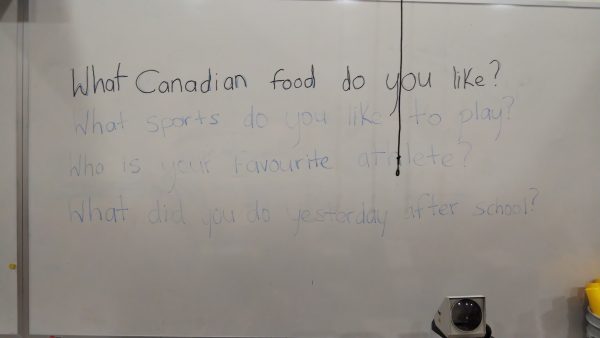 What Canadian food do you like?
What sports do you like to play?
Who is your favourite athlete?
What did you do yesterday after school?